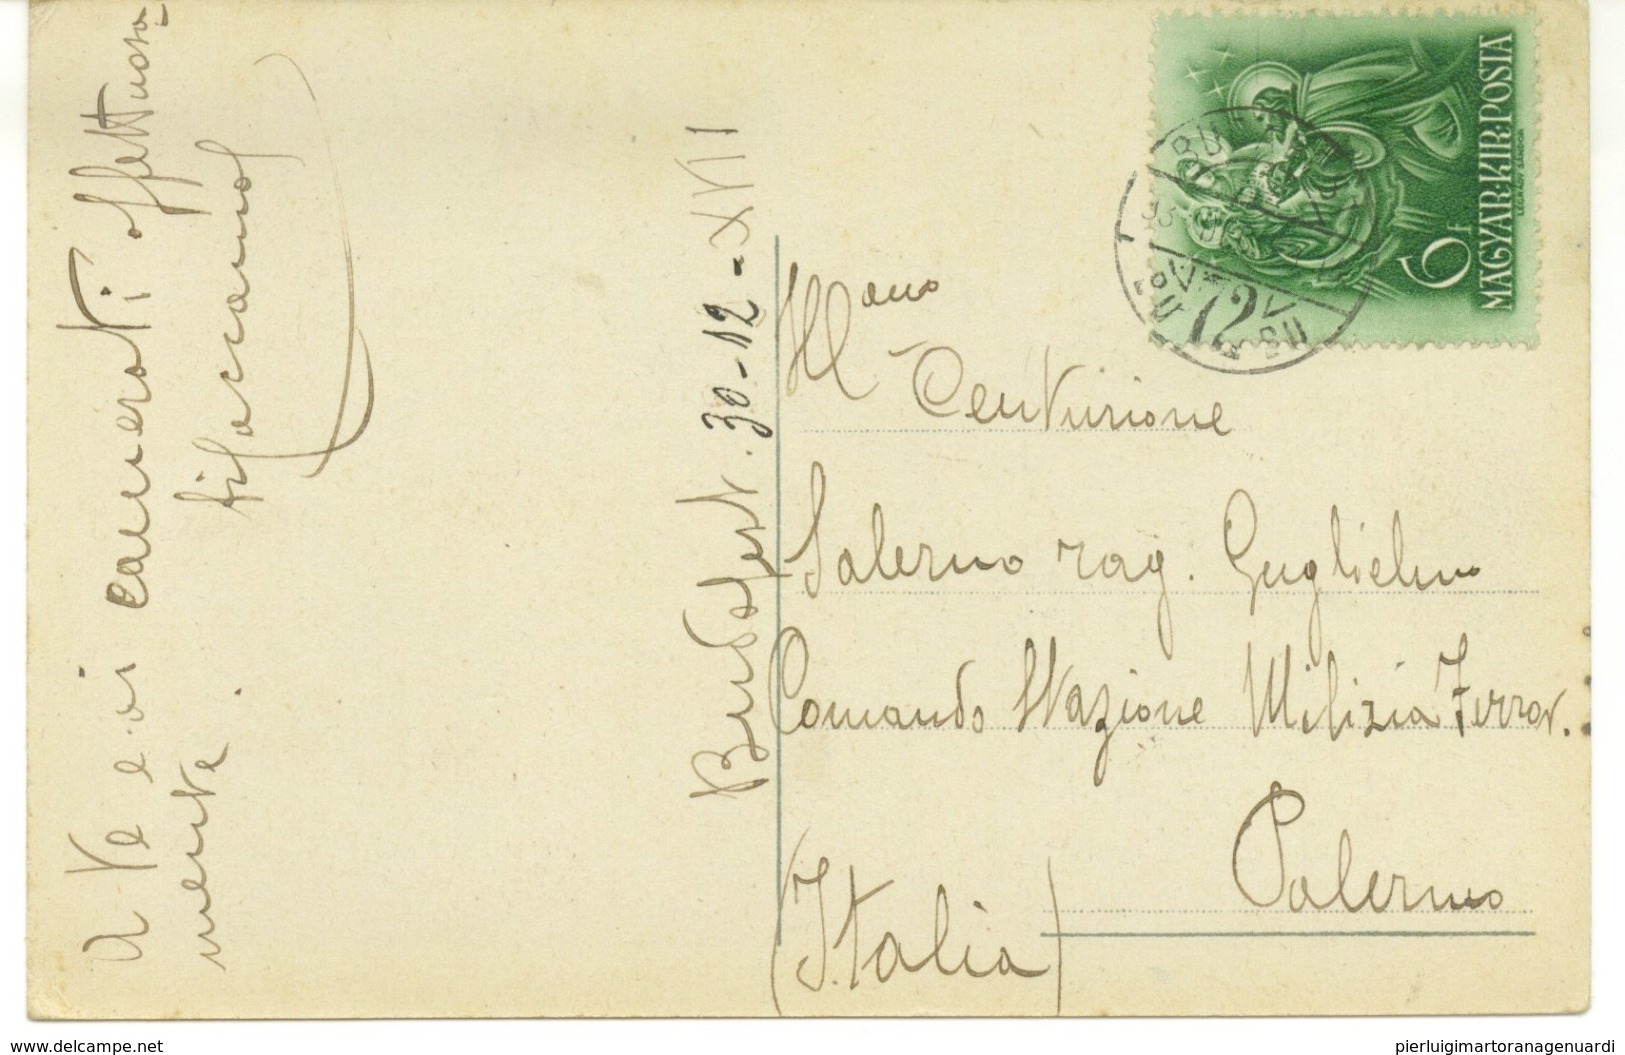 A te e ai camerati affettuosa
mente.
Budapest. 30-12-XVII
Ill.mo
Centurione
Salerno rag. Guglielmo
Comando Stazione Milizia Ferrov.
Palermo
(Italia)
6 f
MAGYAR·KIR·POSTA
BU
72
www.delcampe.net
pierluigimartoranagenuardi